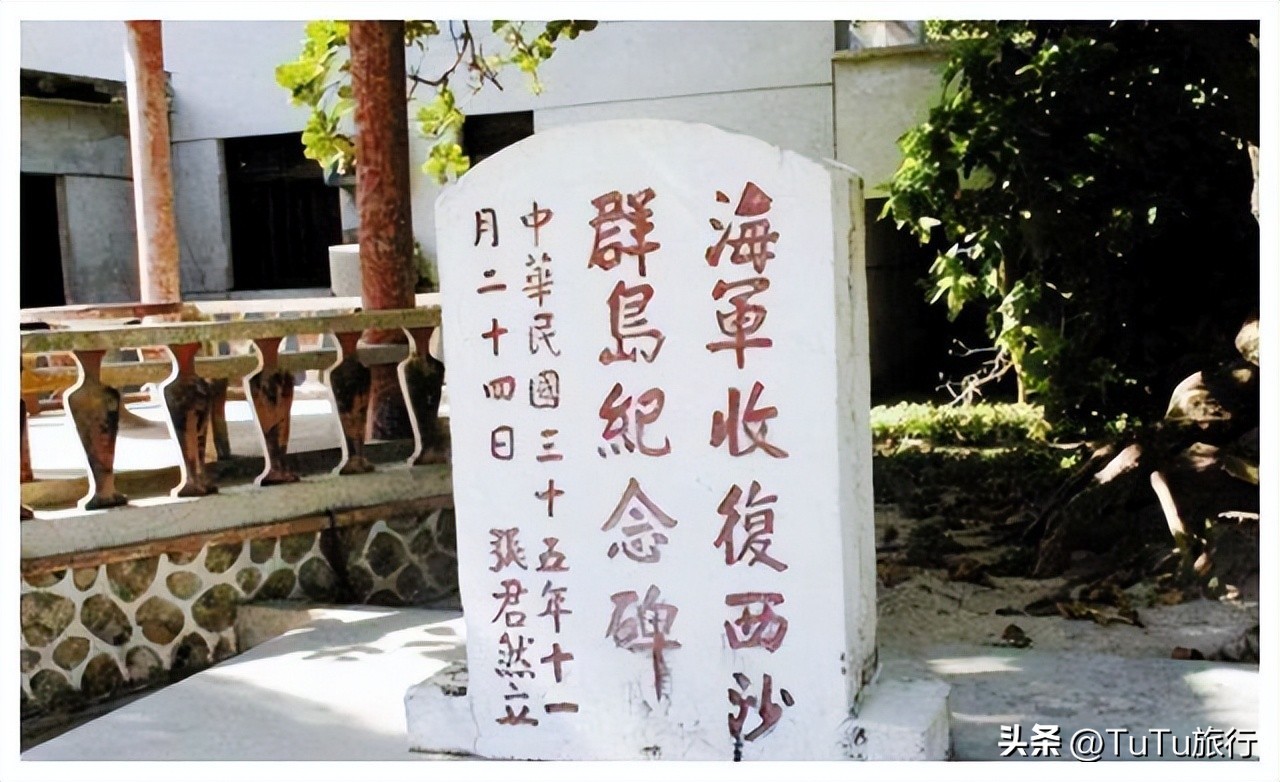 海軍收復西沙
群島紀念碑
中華民國三十五年十一
月二十四日 張君然立
头条 @TuTu旅行